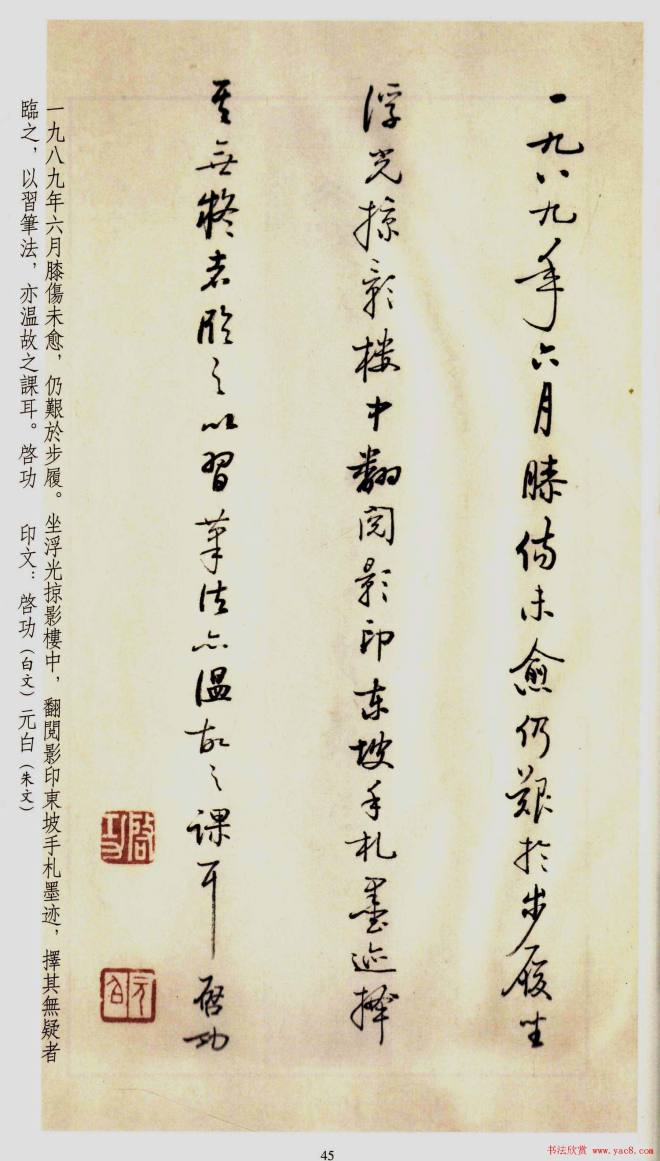 一九八九年六月膝傷未愈仍艱於步履坐
浮光掠影楼中翻阅影印东坡手札墨迹择
其無疑者臨之以習筆法亦温故之課耳 啓功
啓功
元白
一九八九年六月膝傷未愈，仍艱於步履。坐浮光掠影樓中，翻閱影印東坡手札墨迹，擇其無疑者
臨之，以習筆法，亦温故之課耳。啓功　印文：啓功（白文）元白（朱文）
45
书法欣赏 www.yac8.com